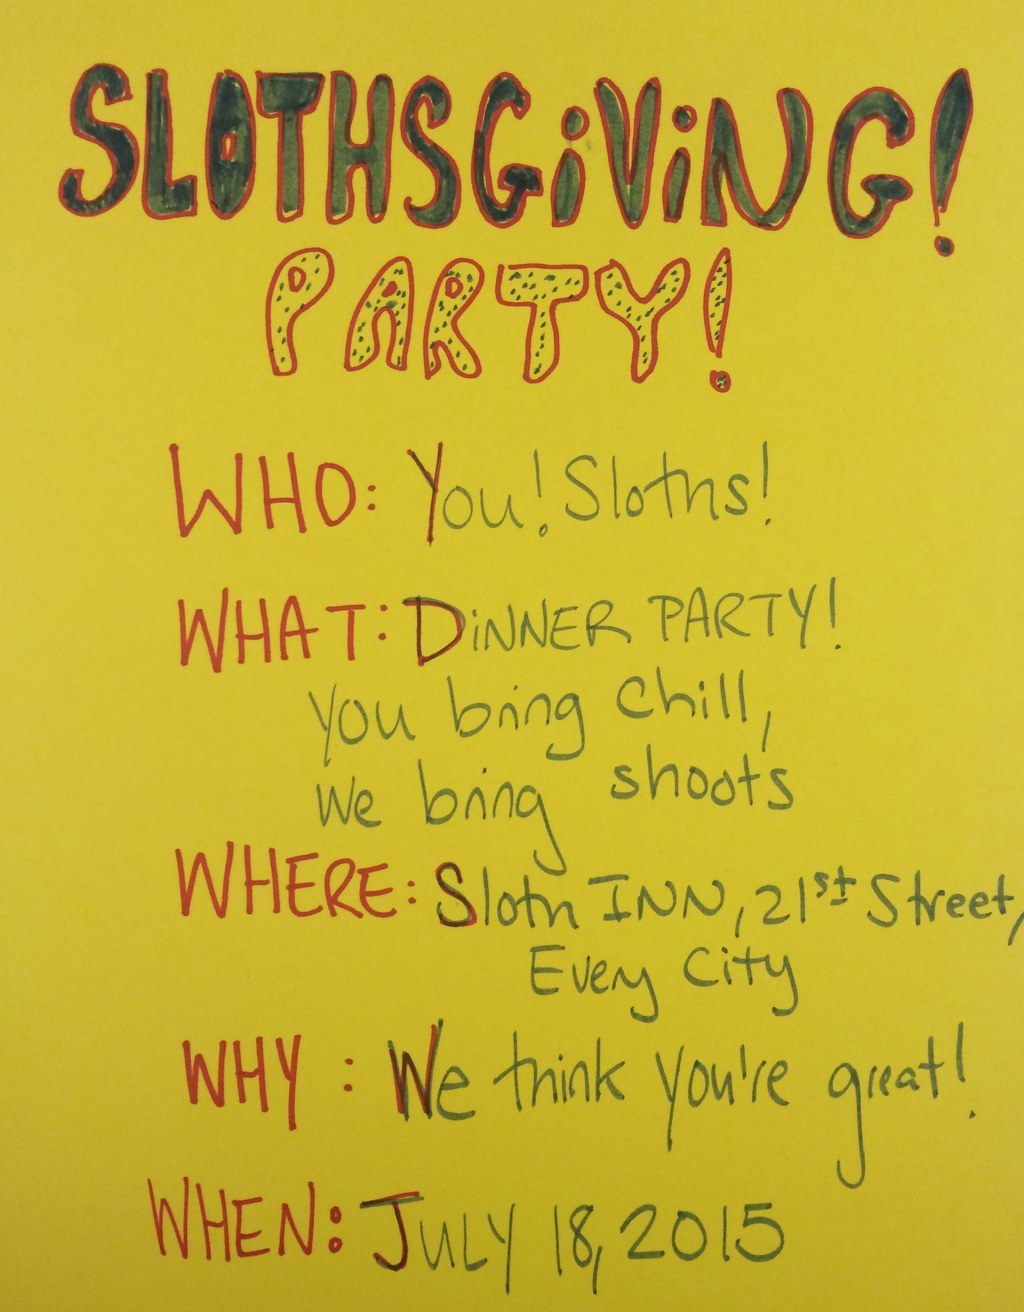 SLOTHSGiViNG!
PARTY!
WHO: You! Sloths!
WHAT: DiNNER PARTY!
you bring chill,
we bring shoots
WHERE: Sloth INN, 21st Street,
Every City
WHY: We think you're great!
WHEN: JULY 18, 2015